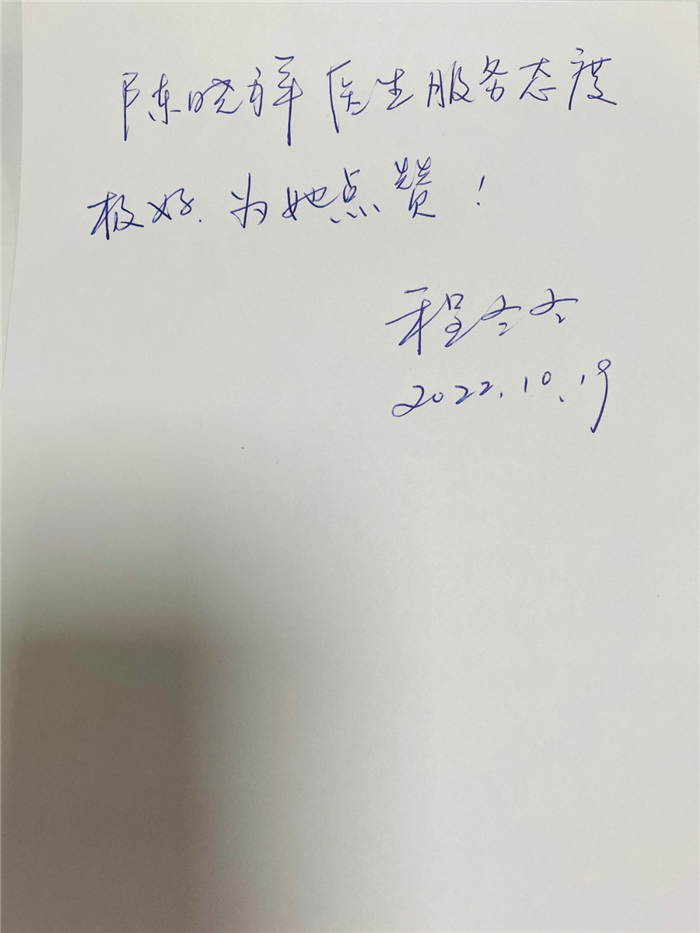 陈晓祥医生服务态度
极好.为她点赞!
程冬冬
2022.10.19